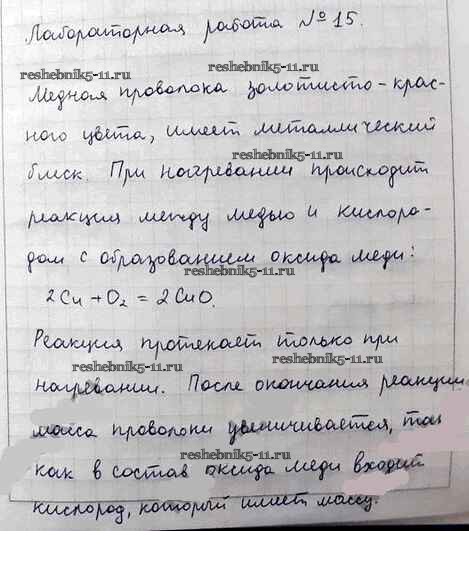 Лабораторная работа № 15.
reshebnik5-11.ru
Медная проволока золотисто-крас-
ного цвета, имеет металлический
reshebnik5-11.ru
блеск. При нагревании происходит
реакция между медью и кислоро-
reshebnik5-11.ru
дом с образованием оксида меди:
reshebnik5-11.ru
2Cu + O₂ = 2CuO.
Реакция протекает только при
reshebnik5-11.ru
reshebnik5-11.ru
нагревании. После окончания реакции
масса проволоки увеличивается, так
reshebnik5-11.ru
как в состав оксида меди входит
reshebnik5-11.ru
кислород, который имеет массу.